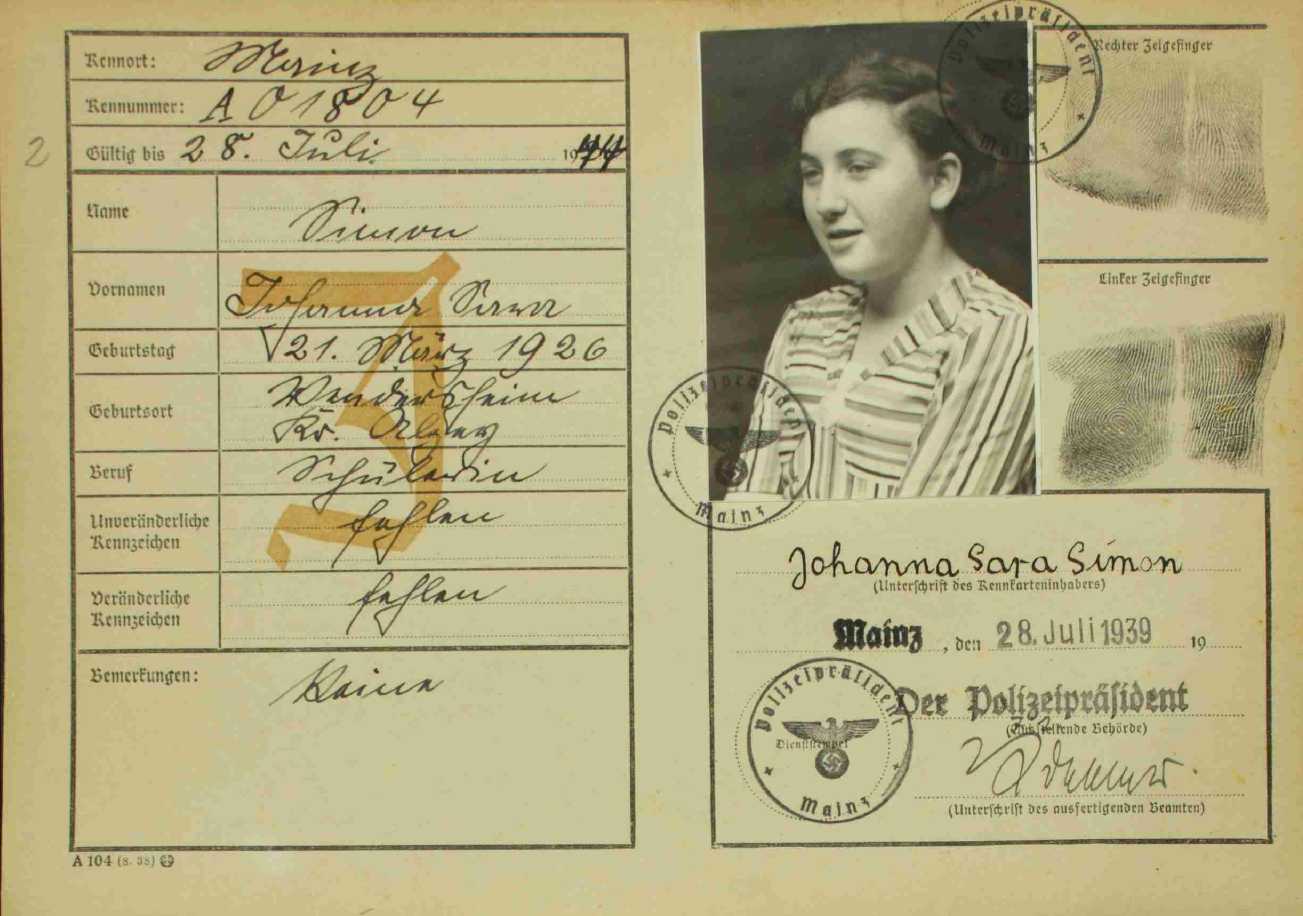 2
Kennort: Mainz
Kennummer: A 01804
Gültig bis 28. Juli 1944
Name Simon
Vornamen Johanna Sara
Geburtstag 21. März 1926
Geburtsort Wendersheim
Kr. Alzey
Beruf Schülerin
Unveränderliche
Kennzeichen fehlen
Veränderliche
Kennzeichen fehlen
Bemerkungen: Keine
J
A 104 (8. 38)
Polizeipräsident
Mainz
Rechter Zeigefinger
Linker Zeigefinger
Polizeipräsident
Mainz
Johanna Sara Simon
(Unterschrift des Kennkarteninhabers)
Mainz, den 28. Juli 1939 19
Der Polizeipräsident
(Ausstellende Behörde)
Polizeipräsident
Dienststempel
Mainz
(Unterschrift des ausfertigenden Beamten)